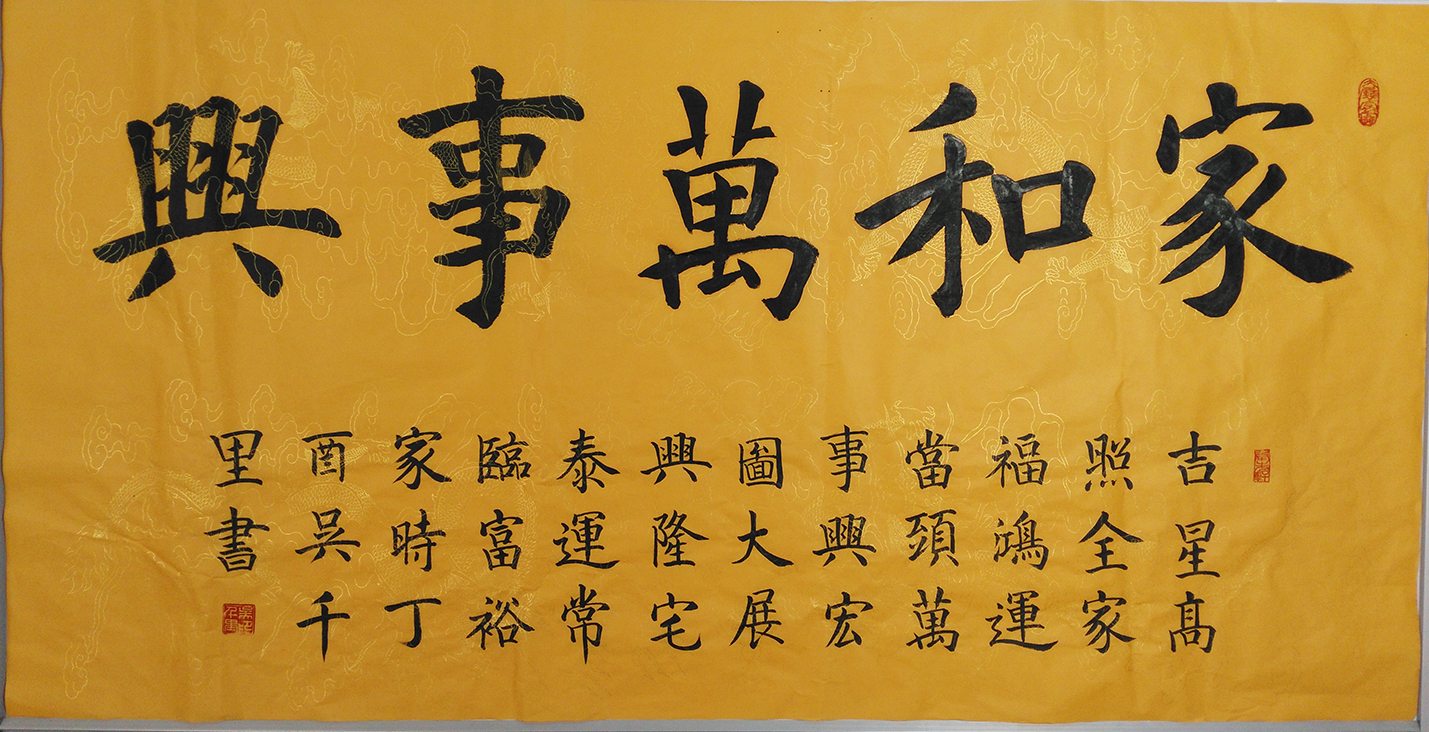 家和萬事興
吉星高
照全家
福鴻運
當頭萬
事興宏
圖大展
興隆宅
泰運常
臨富裕
家時丁
酉吳千
里書